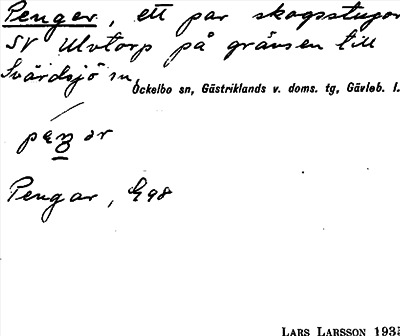 Penger, ett par skogsstugor
SV Ulvtorp på gränsen till
Svärdsjö sn,
Ockelbo sn, Gästriklands v. doms. tg, Gävleb. l.
Pengar, G98
LARS LARSSON 1935